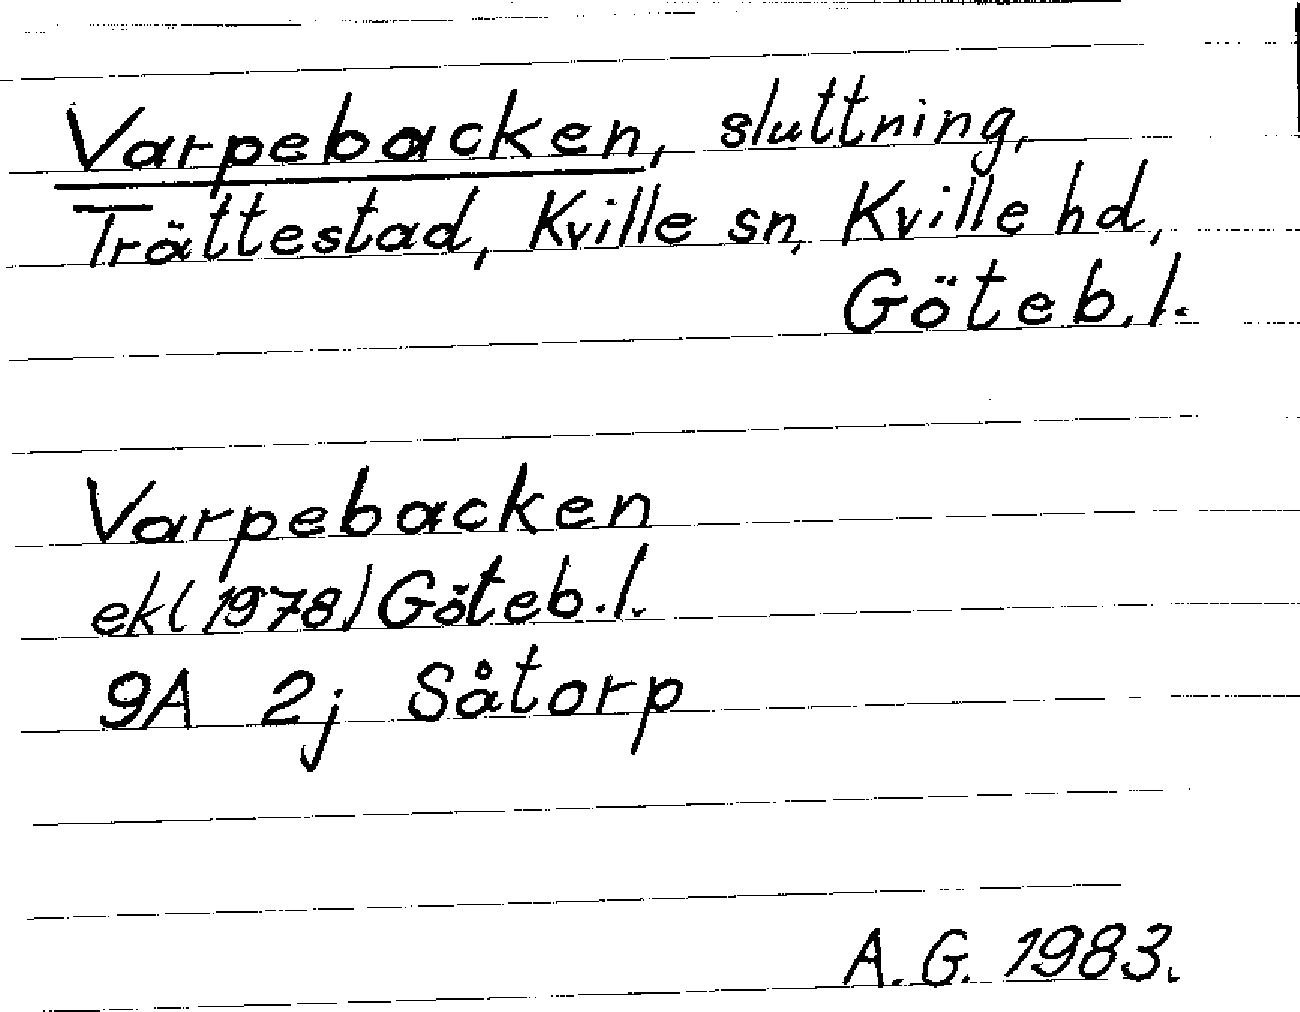 Varpebacken, sluttning,
Trättestad, Kville sn, Kville hd,
Göteb.l.
Varpebacken
ekl(1978) Göteb.l.
9A 2j Såtorp
A.G. 1983.